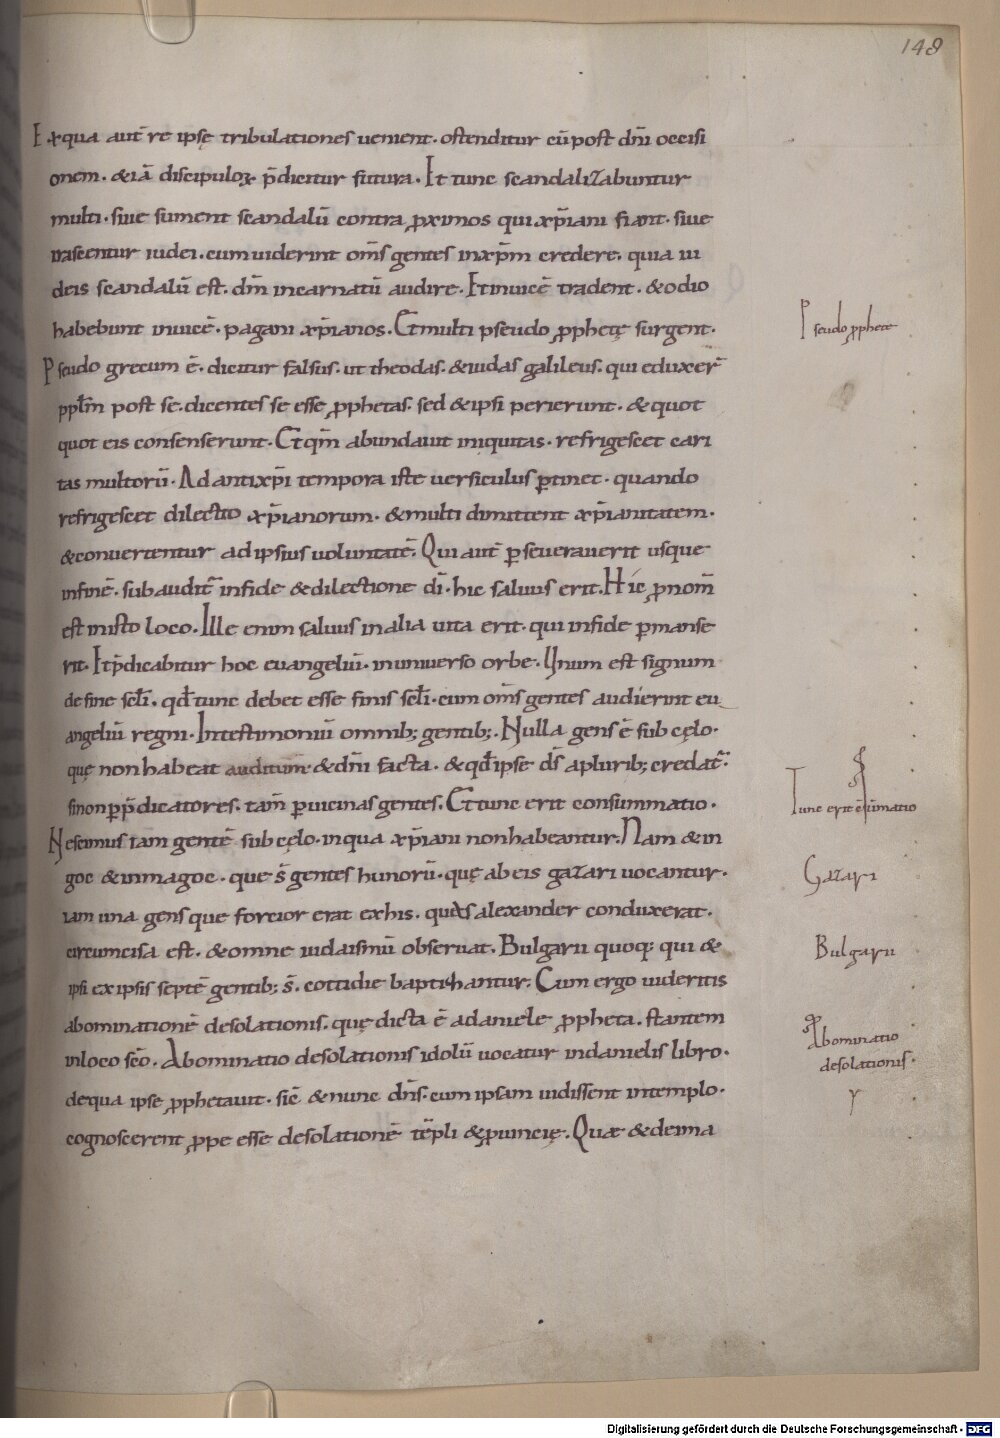 148
Exqua autē re ipsę tribulationes uenient. ostenditur cū post dn̄i occisi
onem. & iā discipuloꝝ p̄dicitur futura. Et tunc scandalizabuntur
multi. siue sument scandalū contra ꝓximos qui xp̄iani fiant. siue
irascentur iudei. cum uiderint om̄s gentes inxp̄m credere. quia iu
deis scandalū est. dm̄ incarnatū audire. Et inuicē tradent. & odio
habebunt inuicē. pagani xp̄ianos. Et multi pseudo ꝓphetę surgent.
Pseudo ꝓphetę
Pseudo grecum ē. dicitur falsus. ut theodas. & iudas galileus. qui eduxer̄
ppl̄m post se. dicentes se esse ꝓphetas. sed & ipsi perierunt. & quot
quot eis consenserunt. Et qm̄ abundauit iniquitas. refrigescet cari
tas multorū. Ad antixp̄i tempora iste uersiculus ꝑtinet. quando
refrigescet dilectio xp̄ianorum. & multi dimittent xp̄ianitatem.
& conuertentur ad ipsius uoluntatē. Qui aut̄ ꝑseuerauerit usque
infinē. subaudit̄ infide & dilectione dī. hic saluus erit. Hic ꝓnom̄
est inisto loco. Ille enim saluus in alia uita erit. qui infide ꝑmanse
rit. Et p̄dicabitur hoc euangeliū. in uniuerso orbe. Unum est signum
de fine scl̄i. qd̄ tunc debet esse finis scl̄i. cum om̄s gentes audierint eu
angeliū regni. Intestimoniū omnib; gentib;. Nulla gens ē sub cęlo.
quę non habeat auditum & dn̄i facta. & qd̄ ipse dī a plurib; credat̄.
si non ꝑ p̄dicatores. tam̄ ꝑ uicinas gentes. Et tunc erit consummatio.
Tunc erit cōsūmatio
Nescimus iam gentē sub cęlo. inqua xp̄iani non habeantur. Nam & in
goc & in magoc. que s̄ gentes hunorū. quę ab eis gazari uocantur.
Gazari
iam una gens que fortior erat ex his. quas alexander conduxerat.
circumcisa est. & omne iudaismū obseruat. Bulgarii quoq; qui &
Bulgarii
ipsi ex ipsis septē gentib; s̄. cottidie baptizantur. Cum ergo uideritis
abominationē desolationis. quę dicta ē adaniele ꝓpheta. stantem
Abominatio
desolationis.
inloco sc̄o. Abominatio desolationis idolū uocatur indanielis libro.
dequa ipse ꝓphetauit. sic̄ & nunc dn̄s. cum ipsam uidissent intemplo.
cognoscerent ꝓpe esse desolationē tēpli & ꝓuincię. Quæ & de una
Digitalisierung gefördert durch die Deutsche Forschungsgemeinschaft - DFG